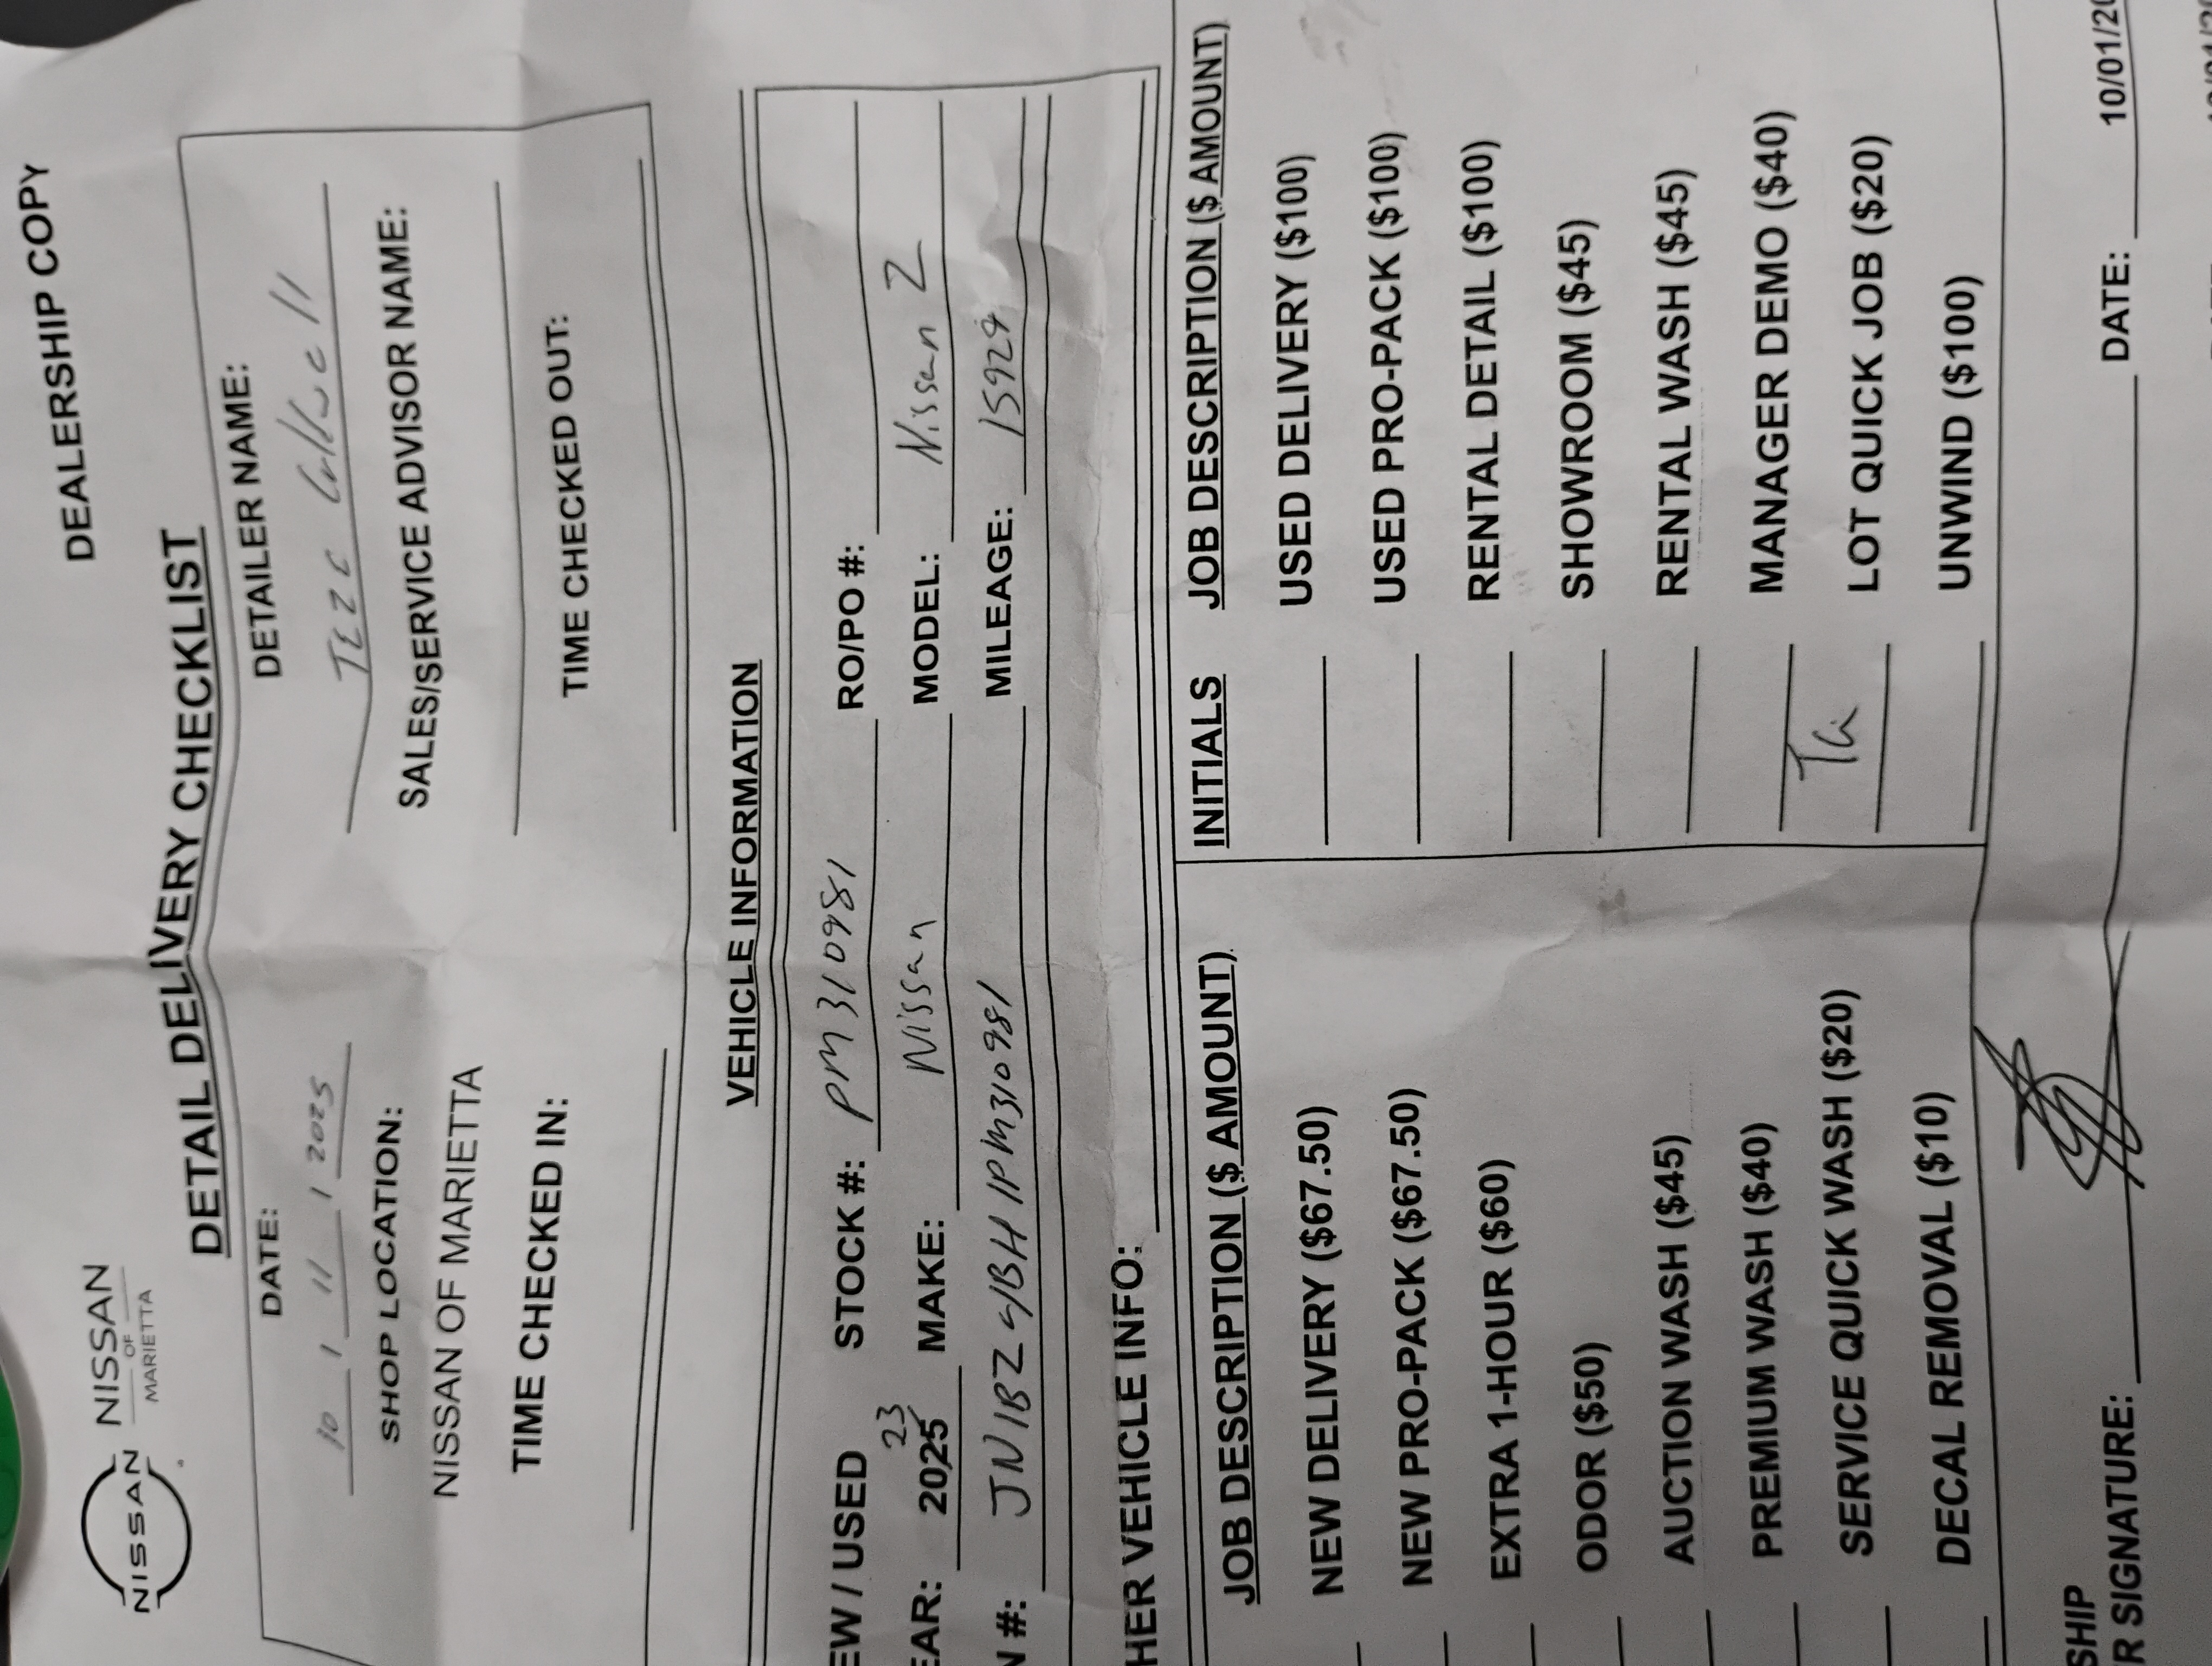 DEALERSHIP COPY
NISSAN NISSAN
OF
MARIETTA
DETAIL DELIVERY CHECKLIST
DATE: DETAILER NAME:
10 / 11 / 2025
SHOP LOCATION: SALES/SERVICE ADVISOR NAME:
NISSAN OF MARIETTA
TIME CHECKED IN: TIME CHECKED OUT:
VEHICLE INFORMATION
EW / USED STOCK #: PM310981 RO/PO #:
23
EAR: 2025 MAKE: Nissan MODEL: Nissan Z
N #: JN1BZ4BH1PM310981 MILEAGE: 15924
HER VEHICLE INFO:
JOB DESCRIPTION ($ AMOUNT) INITIALS JOB DESCRIPTION ($ AMOUNT)
NEW DELIVERY ($67.50) USED DELIVERY ($100)
NEW PRO-PACK ($67.50) USED PRO-PACK ($100)
EXTRA 1-HOUR ($60) RENTAL DETAIL ($100)
ODOR ($50) SHOWROOM ($45)
AUCTION WASH ($45) RENTAL WASH ($45)
PREMIUM WASH ($40) MANAGER DEMO ($40)
SERVICE QUICK WASH ($20) LOT QUICK JOB ($20)
DECAL REMOVAL ($10) UNWIND ($100)
SHIP
R SIGNATURE: DATE: 10/01/20